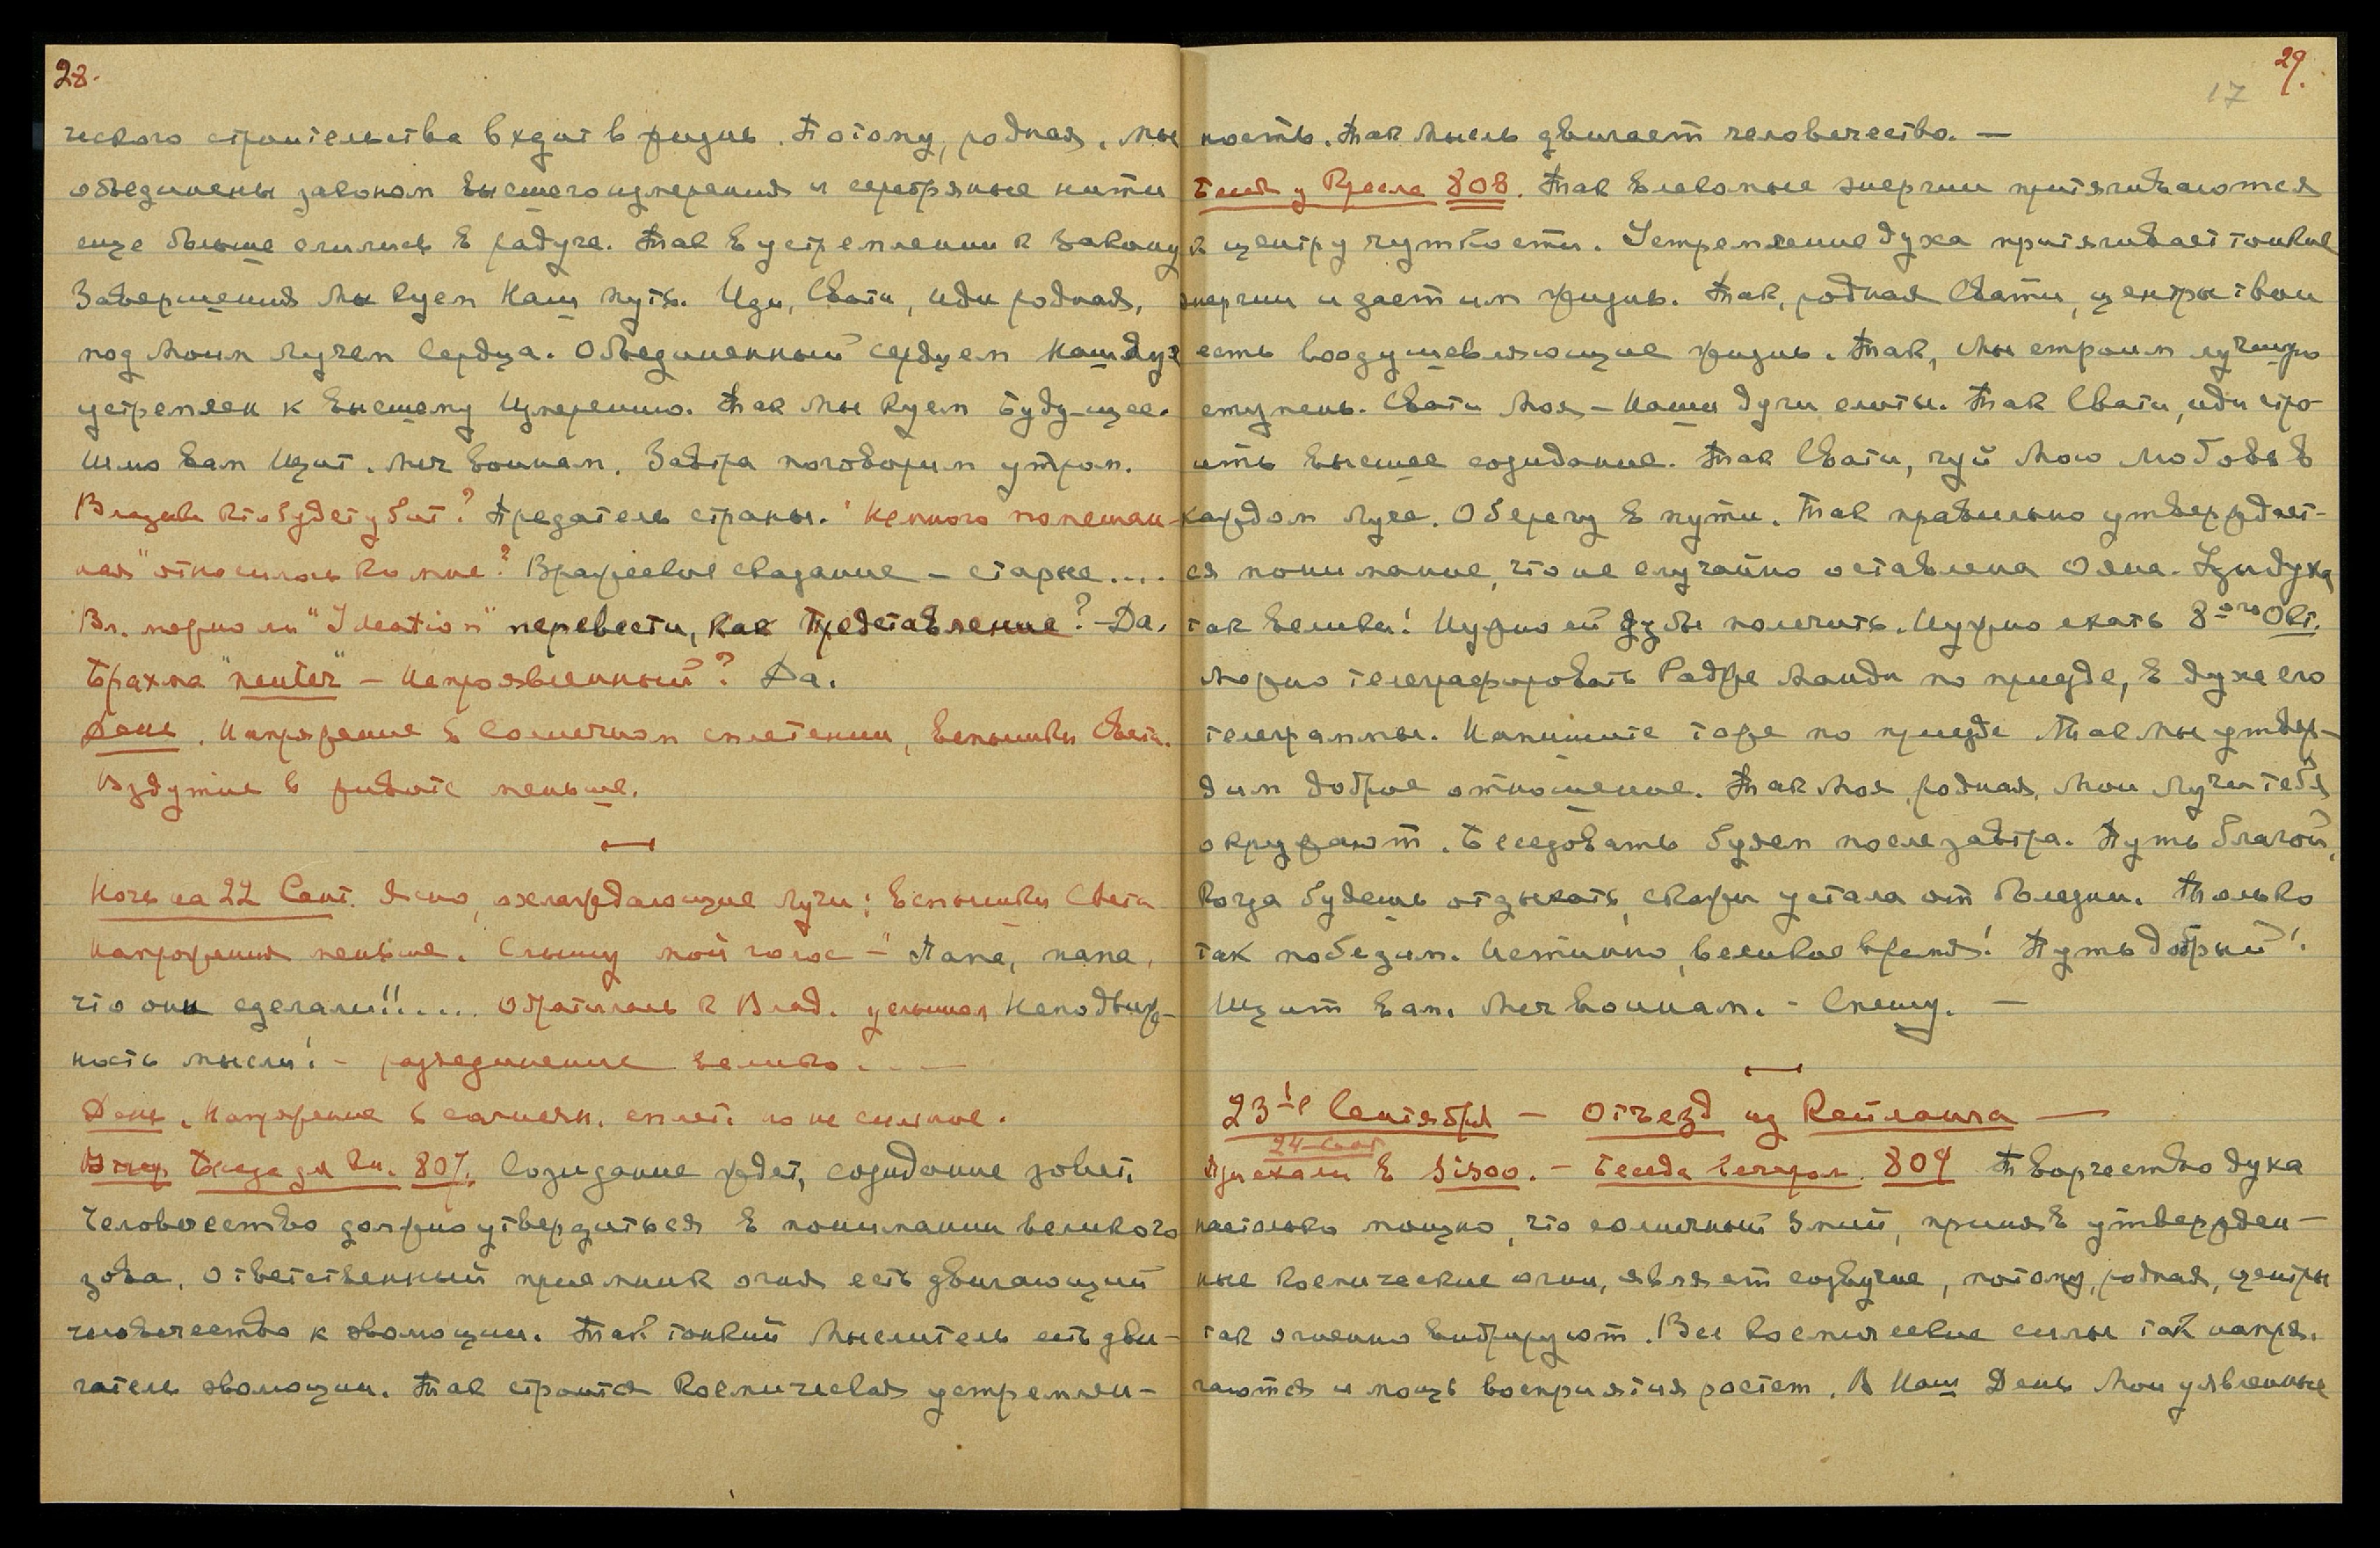 28.
ческого строительства входит в жизнь. Потому, родная, мы
объединены законом высшего измерения и серебряные нити
еще больше слились в радуге. Так в устремлении к закону
Завершения Мы куем Наш путь. Иди, Свати, иди родная,
под Моим лучем сердца. Объединенный сердцем Наш дух
устремлен к Высшему Измерению. Так Мы куем Будущее.
Шлю вам Щит. Меч воинам. Завтра поговорим утром.
Владыка кто будет убит? Предатель страны. "Немного помешан-
ная" относилось ко мне? Вражеское сказание – старые....
Вл. можно ли "Ideation" перевести, как Представление? – Да.
Брахма "neuter" – Непроявленный? Да.
День. Напряжение в солнечном сплетении, вспышки света.
Вздутие в животе меньше.
Ночь на 22 Сент. Ясно, охлаждающие лучи; вспышки света
напряжения меньше. Слышу мой голос – "Папа, папа,
что они сделали!!.... Обратилась к Влад. услышал Неподвиж-
ность мысли! – разъединение велико. —
День. Напряжение в солнечн. сплет. но не сильное.
Вечер Беседа для Кн. 807. Созидание ждет, созидание зовет.
Человечество должно утвердиться в понимании великого
зова. Ответственный приемник огня есть двигающий
человечество к эволюции. Так тонкий Мыслитель есть дви-
гатель эволюции. Так строится Космическая устремлен-
29.
17
ность. Так Мысль двигает человечество. —
Беседа у Кресла 808. Так влекомые энергии притягиваются
к центру чуткости. Устремление духа притягивает тонкие
энергии и дает им жизнь. Так, родная Свати, центры твои
есть воодушевляющие жизнь. Так, Мы строим лучшую
ступень. Свати Моя – Наши духи слиты. Так Свати, иди стро-
ить высшее созидание. Так Свати, чуй Мою Любовь в
каждом Луче. Оберегу в пути. Так правильно утверждает-
ся понимание, что не случайно оставлена Ояна. Узы духа
так велики! Нужно ей зубы полечить. Нужно ехать 8-ого Окт.
Можно телеграфировать Радже Манди по приезде, в духе его
телеграммы. Напишите тоже по приезде. Так Мы утвер-
дим доброе отношение. Так Моя, родная, Мои Лучи тебя
окружают. Беседовать будем послезавтра. Путь благой,
когда будешь отдыхать, скажи устала от болезни. Только
так победим. Истинно, великое время! Путь добрый!
Щит вам. Меч воинам. – Спешу. —
23-е Сентября – Отъезд из Кейланга —
24 Сент
Приехали в Sissoo. – Беседа вечером. 809 Творчество духа
настолько мощно, что солнечный Змий, приняв утвержден-
ные космические огни, являет созвучие, потому, родная, центры
так огненно вибрируют. Все космические силы так напря-
гаются и мощь восприятия ростет. В Наш День Мои уявленные